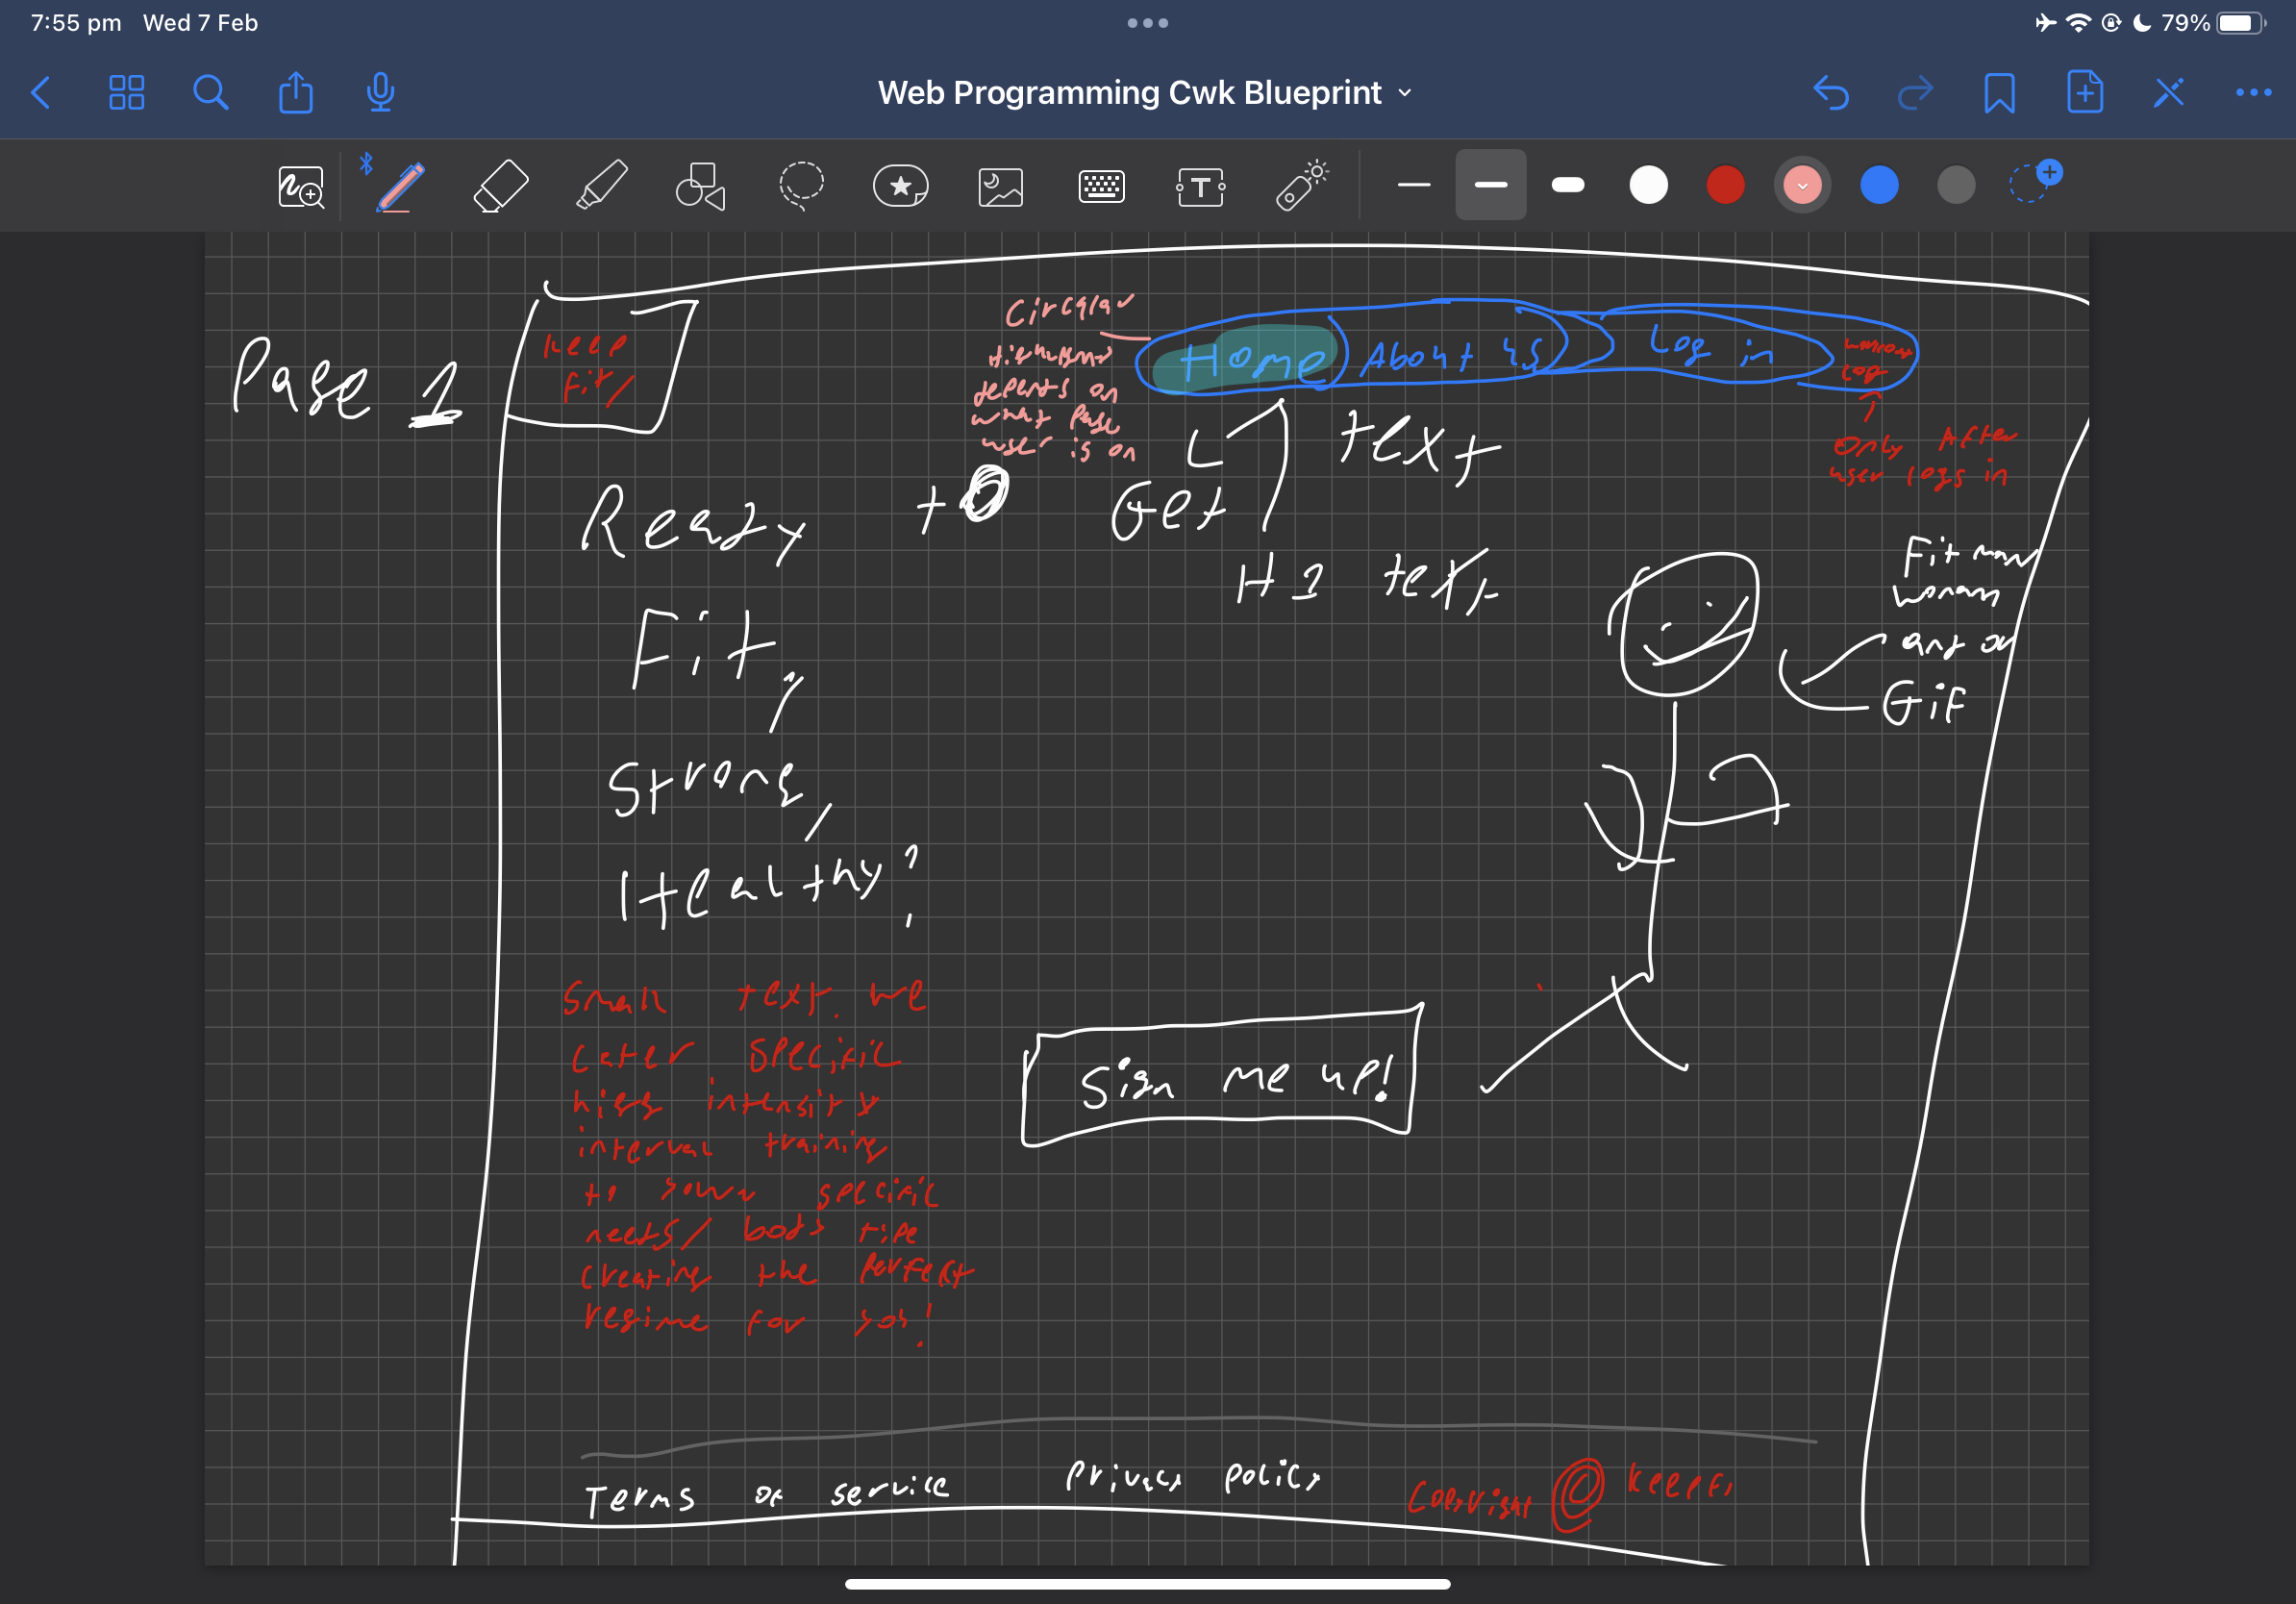 7:55 pm Wed 7 Feb
79%
Web Programming Cwk Blueprint
T
Page 1
Keep
Fit
Circular
depents on
what Page
user is on
Home
About us
Log in
Only After
user logs in
text
Ready to Get
H1 text
Fit,
Strong,
Healthy?
Fit man
woman
art or
Gif
Small text. We
cater specific
high intensity
interval training
to your specific
needs/ body tipe
creating the perfect
regime for you!
Sign me up!
Terms of service
Privacy policy
Copyright @ KeepFi